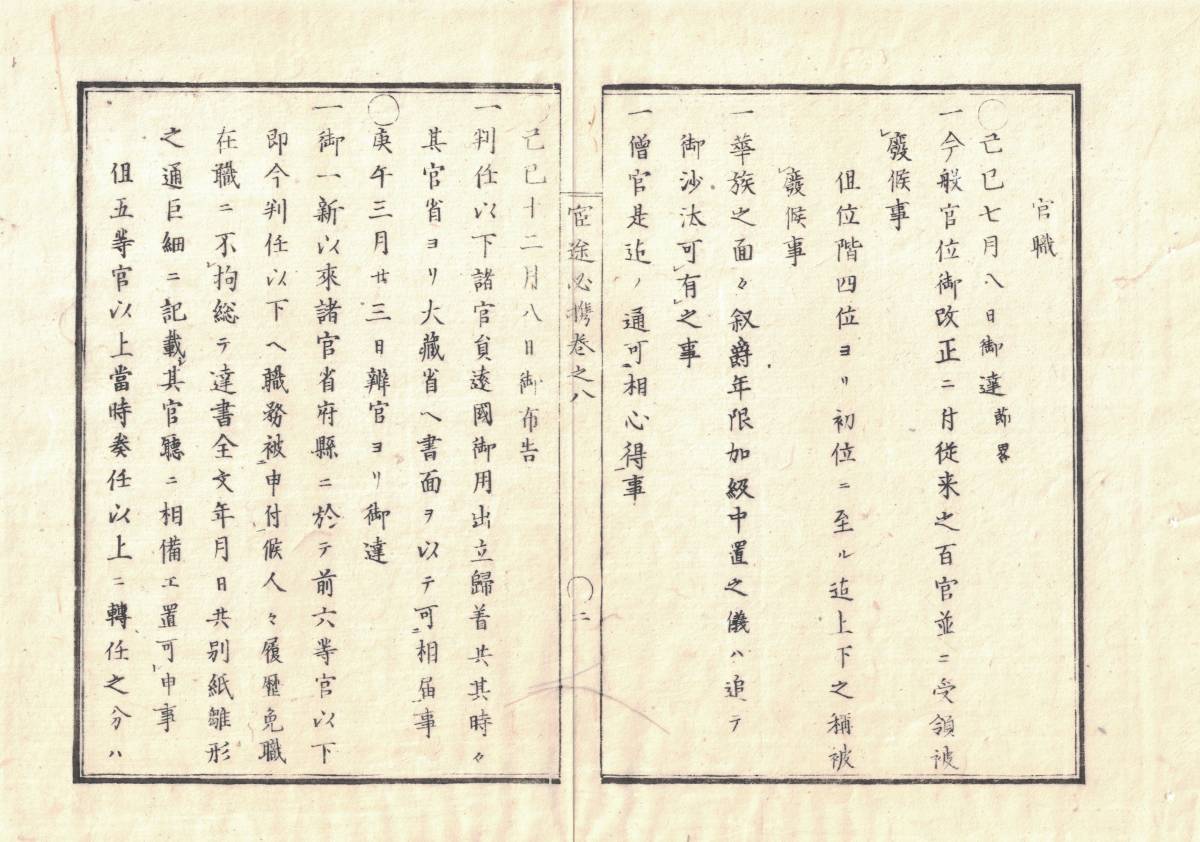 官職
〇己巳七月八日御達節畧
一今般官位御改正ニ付従来之百官並ニ受領被
廢候事
但位階四位ヨリ初位ニ至ル迠上下之稱被
廢候事
一華族之面々叙爵年限加級中置之儀ハ追テ
御沙汰可有之事
一僧官是迠ノ通可相心得事
宦途必携巻之八
〇二
己巳十二月八日御布告
一判任以下諸官員遠國御用出立歸着共其時々
其官省ヨリ大藏省ヘ書面ヲ以テ可相届事
〇庚午三月廿三日辨官ヨリ御達
一御一新以來諸官省府縣ニ於テ前六等官以下
即今判任以下ヘ職務被申付候人々履歴免職
在職ニ不拘総テ達書全文年月日共別紙雛形
之通巨細ニ記載其官聴ニ相備エ置可申事
但五等官以上當時奏任以上ニ轉任之分ハ